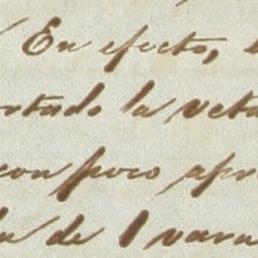 En efecto,
rtado la veta
con poco apr
la de 1 vara